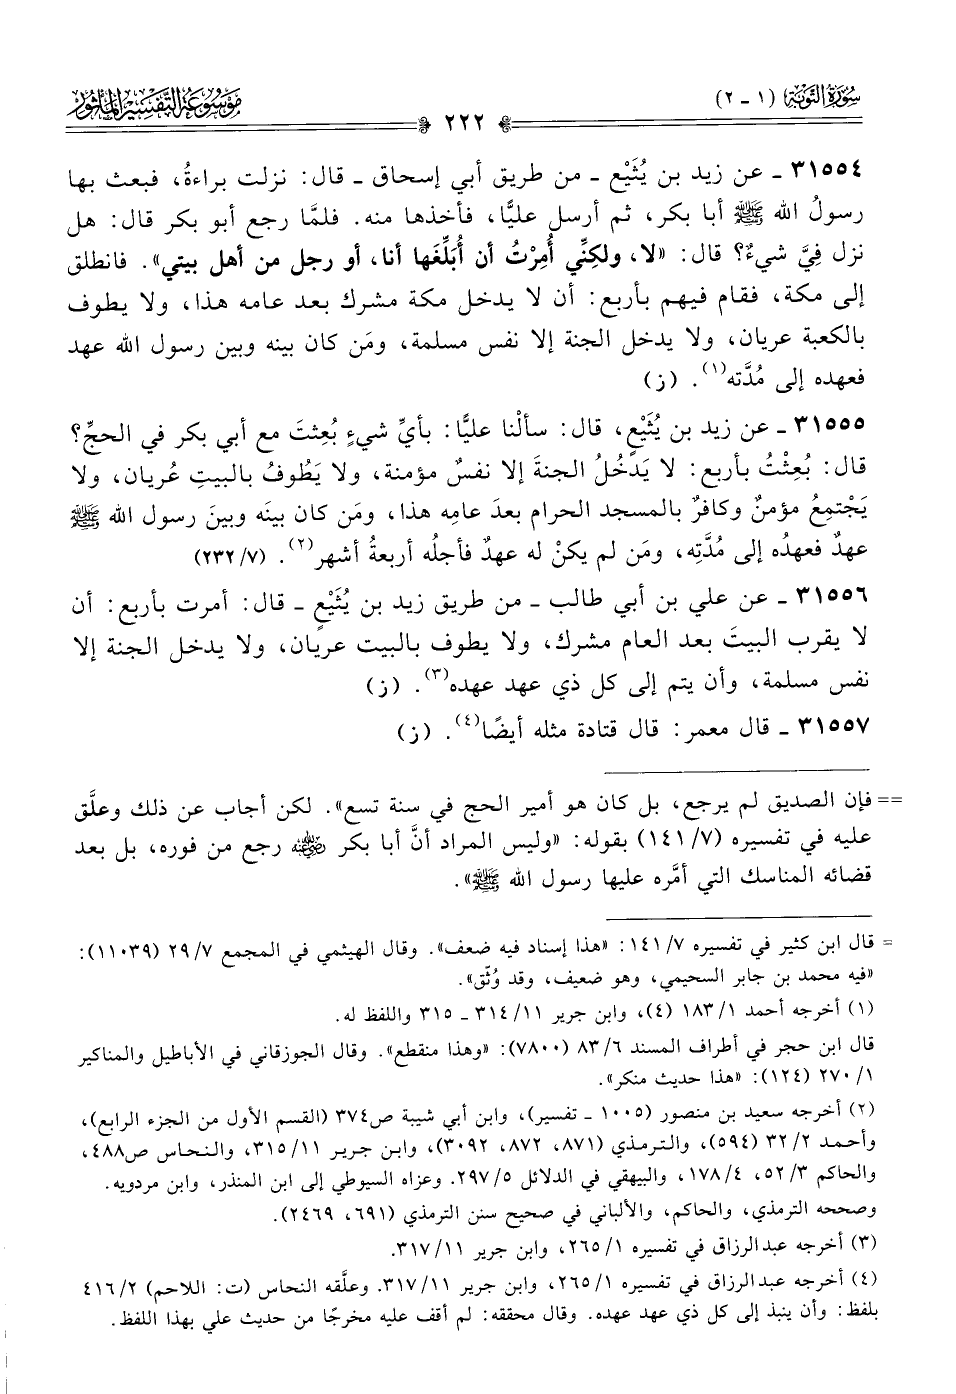 سُورَةُ التَّوْبَةِ (١ - ٢)
٢٢٢
مَوْسُوعَةُ التَّفْسِيرِ المَأْثُورِ
٣١٥٥٤ - عن زيد بن يُثَيْع - من طريق أبي إسحاق - قال: نزلت براءةُ، فبعث بها
رسولُ الله ﷺ أبا بكر، ثم أرسل عليًّا، فأخذها منه. فلمَّا رجع أبو بكر قال: هل
نزل فِيَّ شيءٌ؟ قال: «لا، ولكِنِّي أُمِرْتُ أن أُبَلِّغَها أنا، أو رجل من أهل بيتي». فانطلق
إلى مكة، فقام فيهم بأربع: أن لا يدخل مكة مشرك بعد عامه هذا، ولا يطوف
بالكعبة عريان، ولا يدخل الجنة إلا نفس مسلمة، ومَن كان بينه وبين رسول الله عهد
فعهده إلى مُدَّته(١). (ز)
٣١٥٥٥ - عن زيد بن يُثَيْعٍ، قال: سألْنا عليًّا: بأيِّ شيءٍ بُعِثتَ مع أبي بكر في الحجِّ؟
قال: بُعِثْتُ بأربع: لا يَدْخُلُ الجنةَ إلا نفسٌ مؤمنة، ولا يَطُوفُ بالبيتِ عُريان، ولا
يَجْتمِعُ مؤمنٌ وكافرٌ بالمسجد الحرام بعدَ عامِه هذا، ومَن كان بينَه وبينَ رسول الله ﷺ
عهدٌ فعهدُه إلى مُدَّتِه، ومَن لم يكنْ له عهدٌ فأجلُه أربعةُ أشهر(٢). (٧/ ٢٣٢)
٣١٥٥٦ - عن علي بن أبي طالب - من طريق زيد بن يُثَيْعٍ - قال: أمرت بأربع: أن
لا يقرب البيتَ بعد العام مشرك، ولا يطوف بالبيت عريان، ولا يدخل الجنة إلا
نفس مسلمة، وأن يتم إلى كل ذي عهد عهده(٣). (ز)
٣١٥٥٧ - قال معمر: قال قتادة مثله أيضًا(٤). (ز)
== فإن الصديق لم يرجع، بل كان هو أمير الحج في سنة تسع». لكن أجاب عن ذلك وعلَّق
عليه في تفسيره (٧/ ١٤١) بقوله: «وليس المراد أنَّ أبا بكر رضي الله عنه رجع من فوره، بل بعد
قضائه المناسك التي أمَّره عليها رسول الله ﷺ».
= قال ابن كثير في تفسيره ٧/ ١٤١: «هذا إسناد فيه ضعف». وقال الهيثمي في المجمع ٧/ ٢٩ (١١٠٣٩):
«فيه محمد بن جابر السحيمي، وهو ضعيف، وقد وُثّق».
(١) أخرجه أحمد ١/ ١٨٣ (٤)، وابن جرير ١١/ ٣١٤ - ٣١٥ واللفظ له.
قال ابن حجر في أطراف المسند ٦/ ٨٣ (٧٨٠٠): «وهذا منقطع». وقال الجوزقاني في الأباطيل والمناكير
١/ ٢٧٠ (١٢٤): «هذا حديث منكر».
(٢) أخرجه سعيد بن منصور (١٠٠٥ - تفسير)، وابن أبي شيبة ص٣٧٤ (القسم الأول من الجزء الرابع)،
وأحمد ٢/ ٣٢ (٥٩٤)، والترمذي (٨٧١، ٨٧٢، ٣٠٩٢)، وابن جرير ١١/ ٣١٥، والنحاس ص٤٨٨،
والحاكم ٣/ ٥٢، ٤/ ١٧٨، والبيهقي في الدلائل ٥/ ٢٩٧. وعزاه السيوطي إلى ابن المنذر، وابن مردويه.
وصححه الترمذي، والحاكم، والألباني في صحيح سنن الترمذي (٦٩١، ٢٤٦٩).
(٣) أخرجه عبد الرزاق في تفسيره ١/ ٢٦٥، وابن جرير ١١/ ٣١٧.
(٤) أخرجه عبد الرزاق في تفسيره ١/ ٢٦٥، وابن جرير ١١/ ٣١٧. وعلَّقه النحاس (ت: اللاحم) ٢/ ٤١٦
بلفظ: وأن ينبذ إلى كل ذي عهد عهده. وقال محققه: لم أقف عليه مخرجًا من حديث علي بهذا اللفظ.